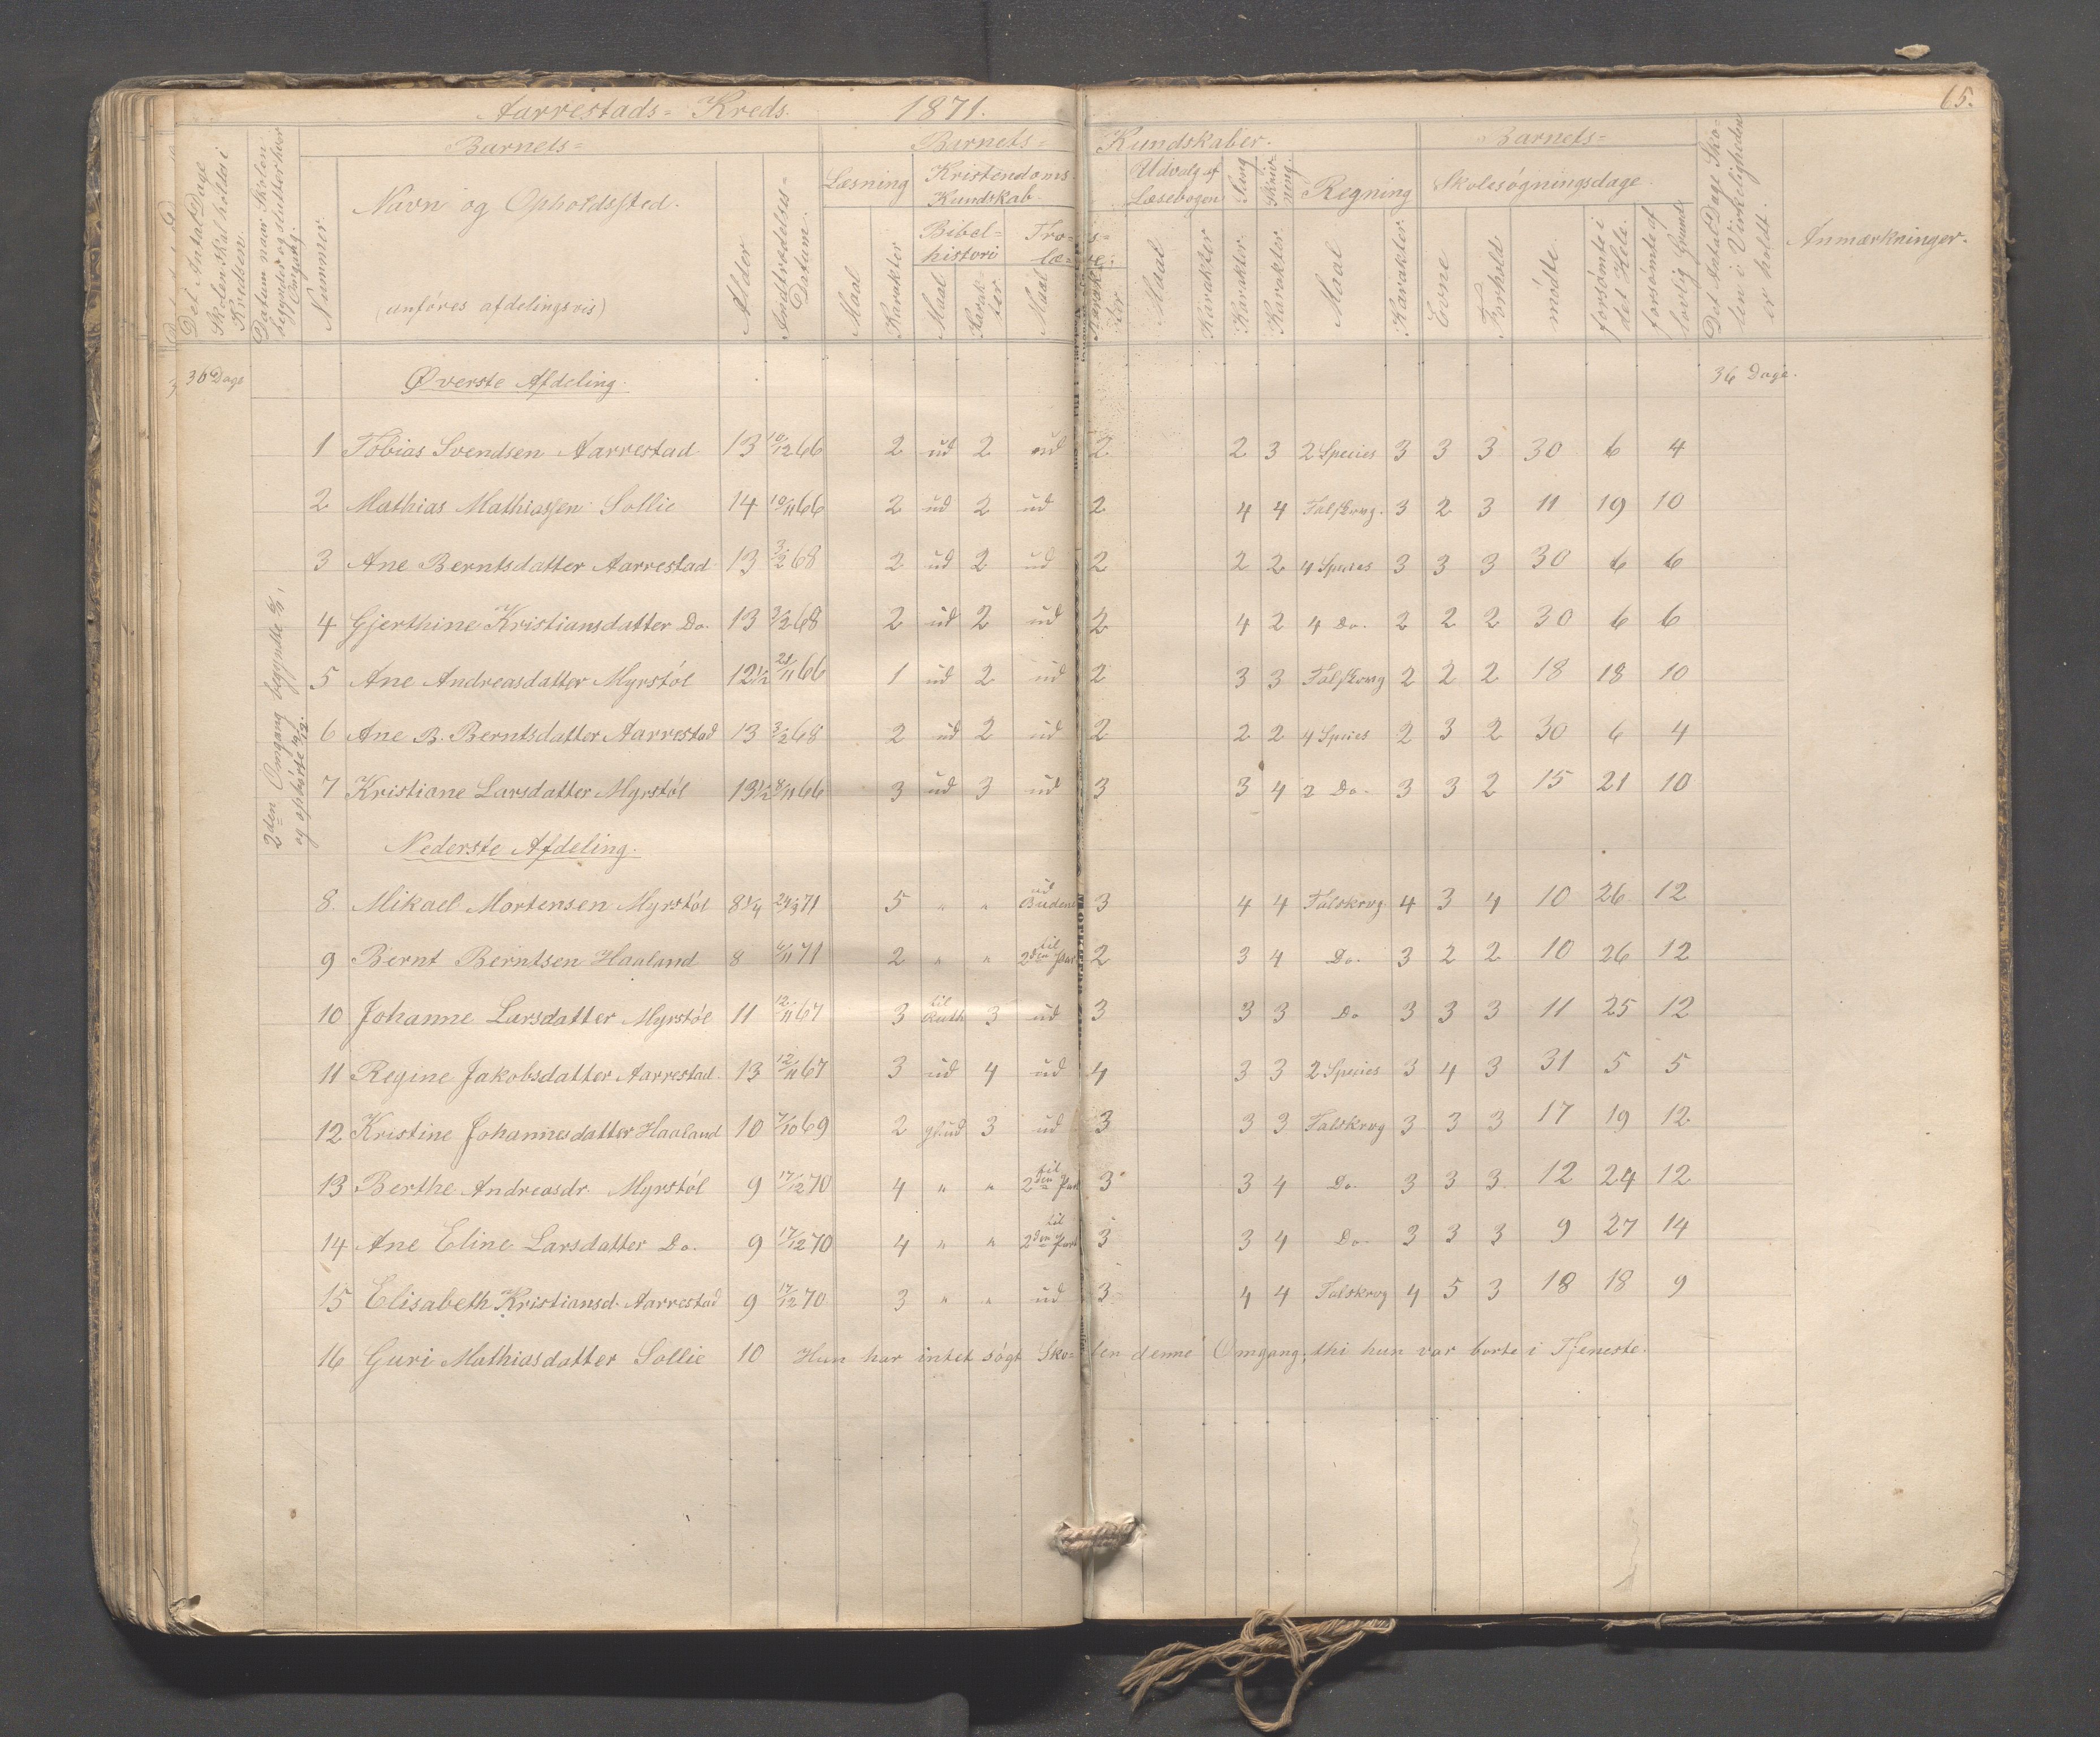 Aarrestads= Kreds. 1871. 65.
Det Antal Dage Skolen skal holdes i Kredsen.
Datum naar Skolen begynder og slutter hver Omgang.
Barnets=
Nummer
Navn og Opholdssted.
(anføres afdelingsvis)
Alder
Indtrædelses=Datum.
Barnets= Kundskaber.
Læsning
Maal
Karakter
Kristendoms Kundskab.
Bibel=historie
Maal
Karakter.
Troes=lære.
Maal
Karakter
Udvalg af Læsebogen
Maal
Karakter
Sang
Karakter.
Skrivning.
Karakter.
Regning
Maal
Karakter.
Barnets=
Evne
Forhold
Skolesøgningsdage.
mødte.
forsømte i det Hele.
forsømte af lovlig Grund.
Det Antal Dage Skolen i Virkeligheden er holdt.
Anmærkninger.
36 Dage Øverste Afdeling. 36 Dage.
2den Omgang begyndte
og ophørte
1 Tobias Svendsen Aarrestad 13 10/12 66 2 ud 2 ud 2 2 3 2 Species 3 3 3 30 6 4
2 Mathias Mathiassen Sollie 14 10/11 66 2 ud 2 ud 2 4 4 Talskrvg. 3 2 3 11 19 10
3 Ane Berntsdatter Aarrestad 13 3/2 68 2 ud 2 ud 2 2 2 4 Species 3 3 3 30 6 6
4 Gjerthine Kristiansdatter Do. 13 3/2 68 2 ud 2 ud 2 4 2 4 Do. 2 2 2 30 6 6
5 Ane Andreasdatter Myrstøl 12½ 21/11 66 1 ud 2 ud 2 3 3 Talskrvg 2 2 2 18 18 10
6 Ane B. Berntsdatter Aarrestad 13 3/2 68 2 ud 2 ud 2 2 2 4 Species 2 3 2 30 6 4
7 Kristiane Larsdatter Myrstøl 13½ /11 66 3 ud 3 ud 3 3 4 2 Do. 3 3 2 15 21 10
Nederste Afdeling.
8. Mikael Mortensen Myrstøl 8¼ 24/3 71 5 " " ud Budene 3 4 4 Talskrvg 4 3 4 10 26 12
9 Bernt Berntsen Haaland 8 /11 71 2 " " til 2den Part 2 3 4 Do. 3 2 2 10 26 12
10 Johanne Larsdatter Myrstøl 11 12/11 67 3 til Ruth 3 ud 3 3 3 Do 3 3 3 11 25 12
11 Regine Jakobsdatter Aarrestad. 13 12/11 67 3 ud 4 ud 4 3 3 2 Species 3 4 3 31 5 5
12 Kristine Johannesdatter Haaland 10 7/10 69 2 ud 3 ud 3 3 3 Talskrvg 3 3 3 17 19 12
13 Berthe Andreasdr. Myrstøl 9 17/12 70 4 " " til 2den Part 3 3 4 Do. 3 3 3 12 24 12
14 Ane Eline Larsdatter Do. 9 17/12 70 4 " " til 2den Part 3 3 4 Do. 3 3 3 9 27 14
15 Elisabeth Kristiansd. Aarrestad 9 17/12 70 3 " " ud 3 4 4 Talskrvg 4 5 3 18 18 9
16 Guri Mathiasdatter Sollie 10 Hun har intet søgt Skolen denne Omgang, thi hun var borte i Tjeneste.